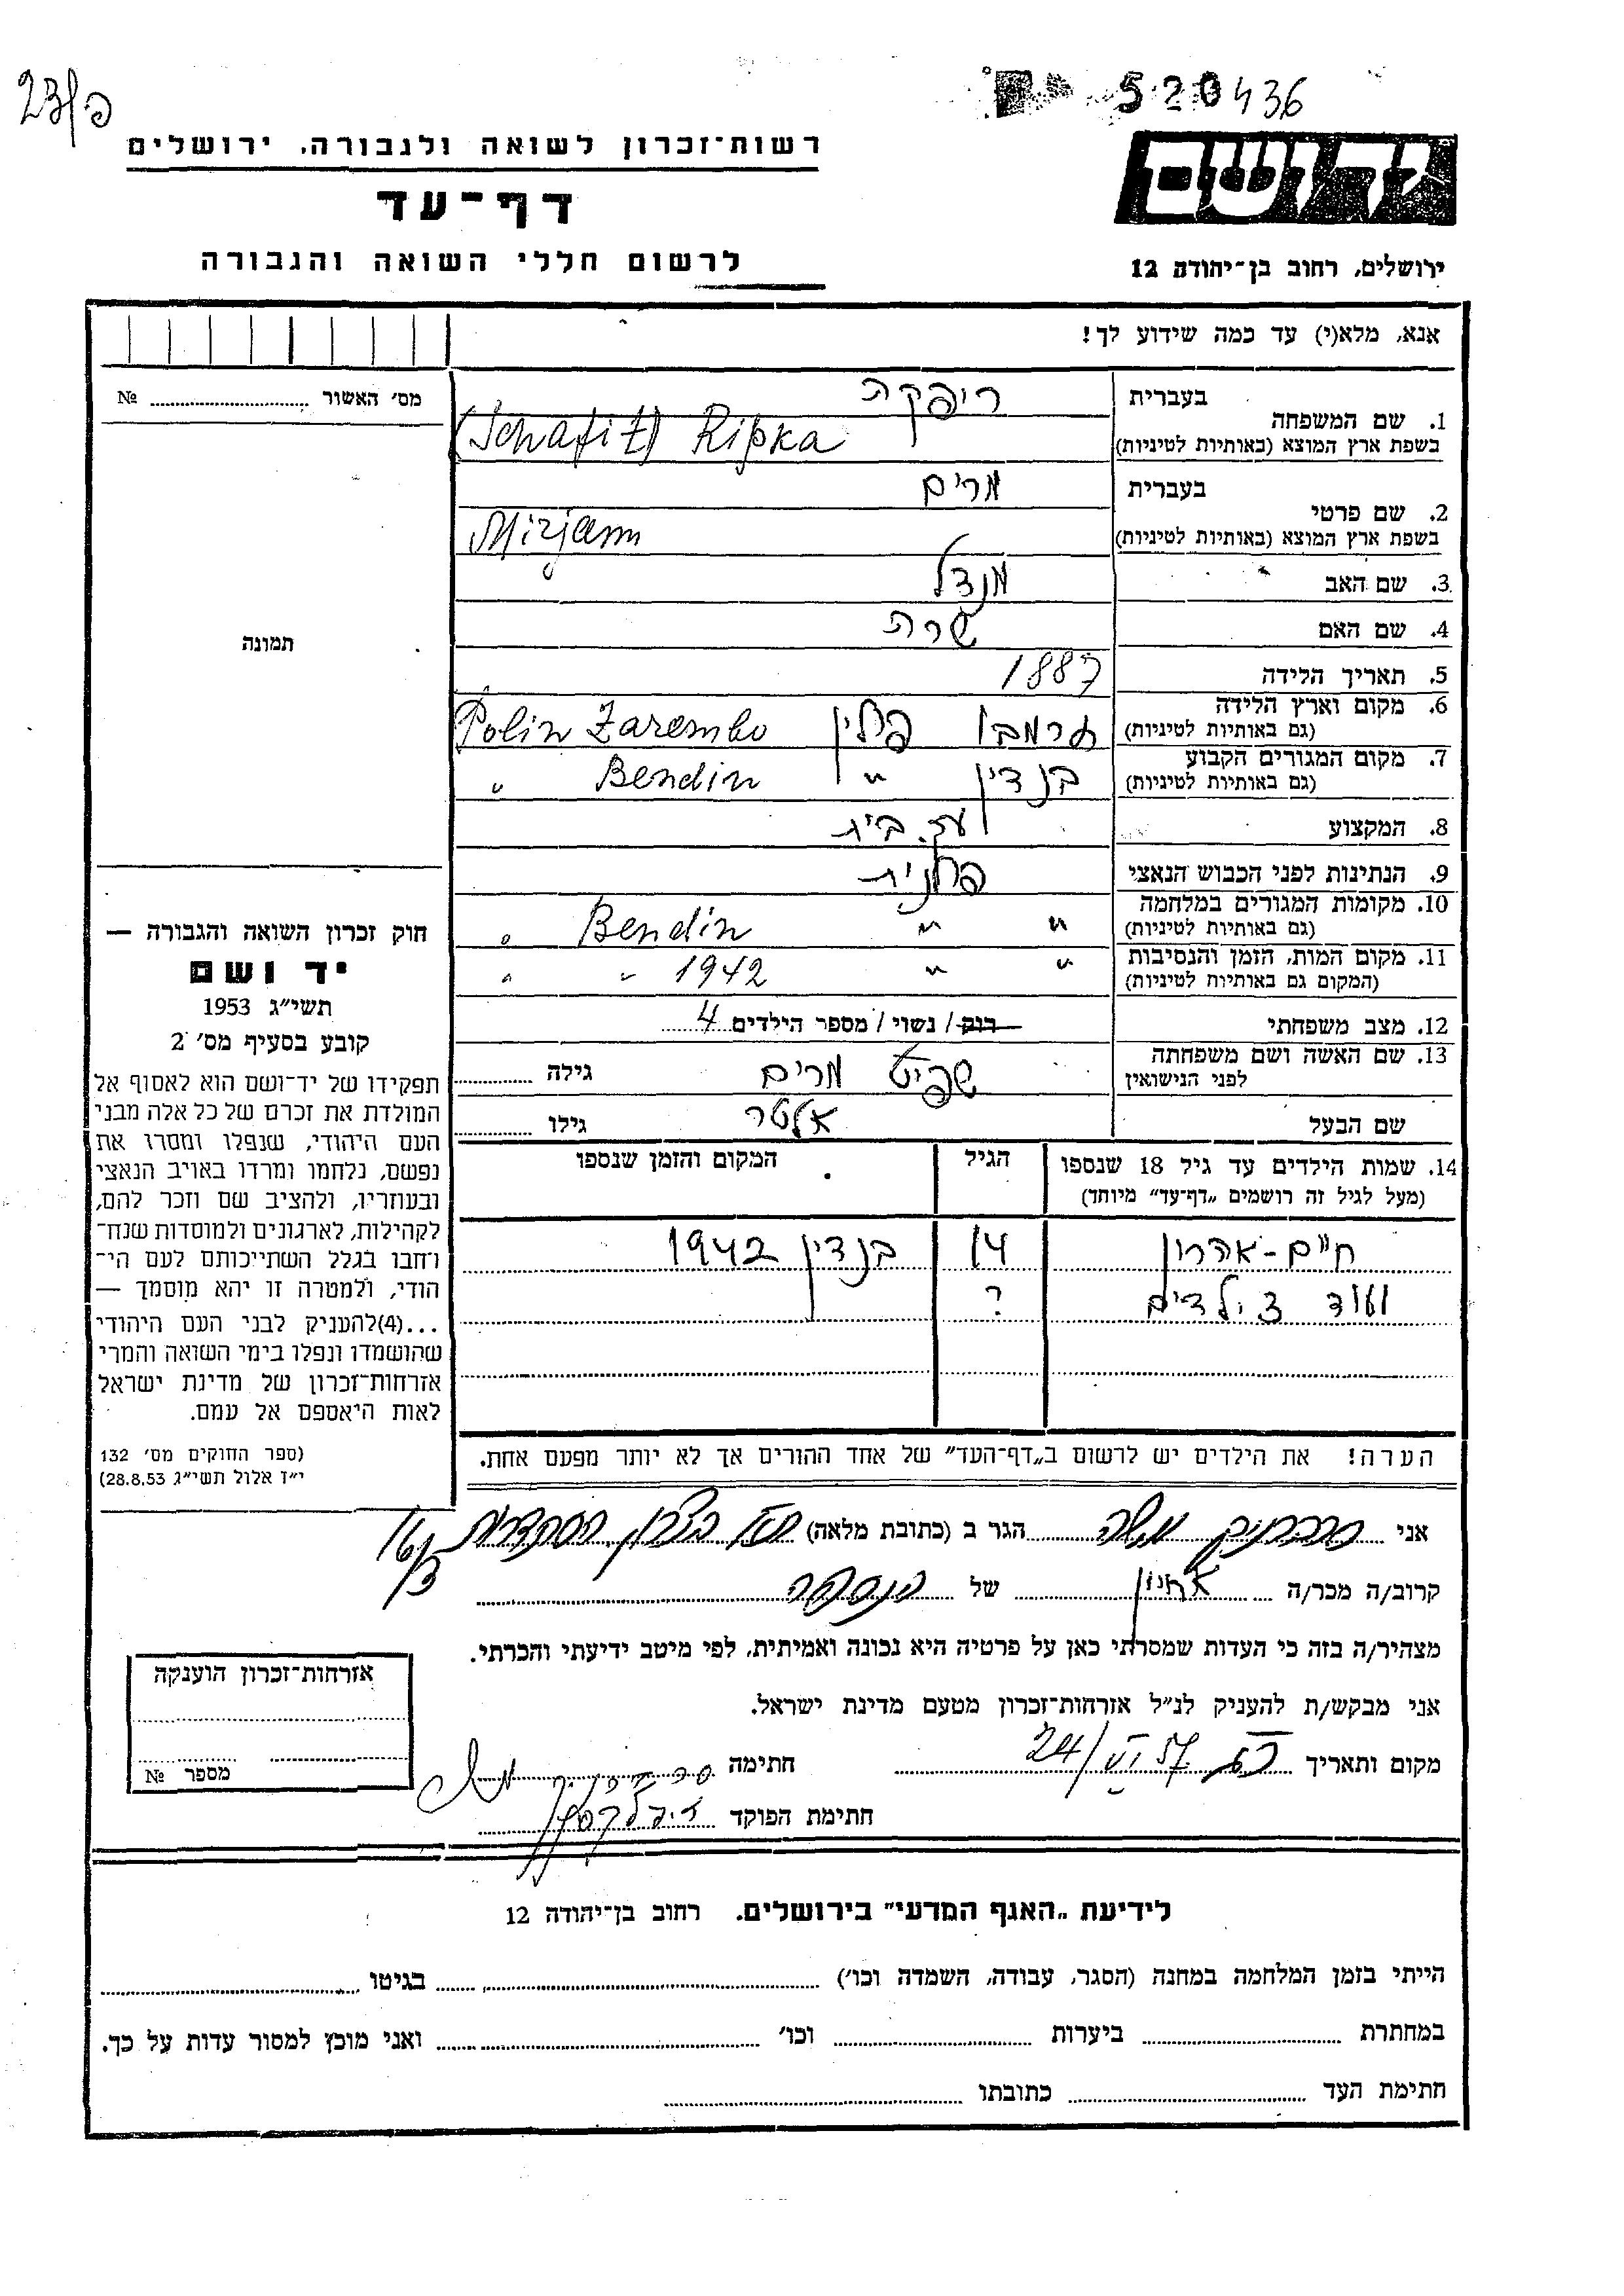 23/פ
520436
רשות־זכרון לשואה ולגבורה, ירושלים
דף־עד
לרשום חללי השואה והגבורה
יד ושם
ירושלים, רחוב בן־יהודה 12
אנא, מלא(י) עד כמה שידוע לך!
מס׳ האשור № 
1. שם המשפחה
בעברית ריפקה
בשפת ארץ המוצא (באותיות לטיניות) (Schafit) Ripka
2. שם פרטי
בעברית מרים
בשפת ארץ המוצא (באותיות לטיניות) Mirjam
3. שם האב מנדל
4. שם האם שרה
5. תאריך הלידה 1887
6. מקום וארץ הלידה
(גם באותיות לטיניות) זרמבו פולין Polin Zarembo
7. מקום המגורים הקבוע
(גם באותיות לטיניות) בנדין " Bendin "
8. המקצוע עק. בית
9. הנתינות לפני הכבוש הנאצי פולנית
10. מקומות המגורים במלחמה
(גם באותיות לטיניות) " " Bendin "
11. מקום המות, הזמן והנסיבות
(המקום גם באותיות לטיניות) " " 1942 " "
12. מצב משפחתי רוק / נשוי / מספר הילדים 4
13. שם האשה ושם משפחתה
לפני הנישואין שפיט מרים גילה
שם הבעל אלטר גילו
14. שמות הילדים עד גיל 18 שנספו
(מעל לגיל זה רושמים „דף־עד״ מיוחד)
הגיל
המקום והזמן שנספו
חיים-אהרון 14 בנדין 1942
ועוד 3 ילדים ?
הערה! את הילדים יש לרשום ב„דף־העד״ של אחד ההורים אך לא יותר מפעם אחת.
תמונה
חוק זכרון השואה והגבורה —
יד ושם
תשי״ג 1953
קובע בסעיף מס׳ 2
תפקידו של יד־ושם הוא לאסוף אל
המולדת את זכרם של כל אלה מבני
העם היהודי, שנפלו ומסרו את
נפשם, נלחמו ומרדו באויב הנאצי
ובעוזריו, ולהציב שם וזכר להם,
לקהילות, לארגונים ולמוסדות שנח־
רחבו בגלל השתייכותם לעם הי־
הודי, ולמטרה זו יהא מוסמך —
...(4)להעניק לבני העם היהודי
שהושמדו ונפלו בימי השואה והמרי
אזרחות־זכרון של מדינת ישראל
לאות היאספם אל עמם.
(ספר החוקים מס׳ 132
י״ז אלול תשי״ג 28.8.53)
אני משה הגר ב (כתובת מלאה) 16/3
קרוב/ה מכר/ה אחיין של הנספה
מצהיר/ה בזה כי העדות שמסרתי כאן על פרטיה היא נכונה ואמיתית, לפי מיטב ידיעתי והכרתי.
אני מבקש/ת להעניק לנ״ל אזרחות־זכרון מטעם מדינת ישראל.
מקום ותאריך 24/VI 57 חתימה
חתימת הפוקד
אזרחות־זכרון הוענקה
מספר №
לידיעת „האגף המדעי״ בירושלים. רחוב בן־יהודה 12
הייתי בזמן המלחמה במחנה (הסגר, עבודה, השמדה וכו׳) בגיטו
במחתרת ביערות וכו׳ ואני מוכן למסור עדות על כך.
חתימת העד כתובתו